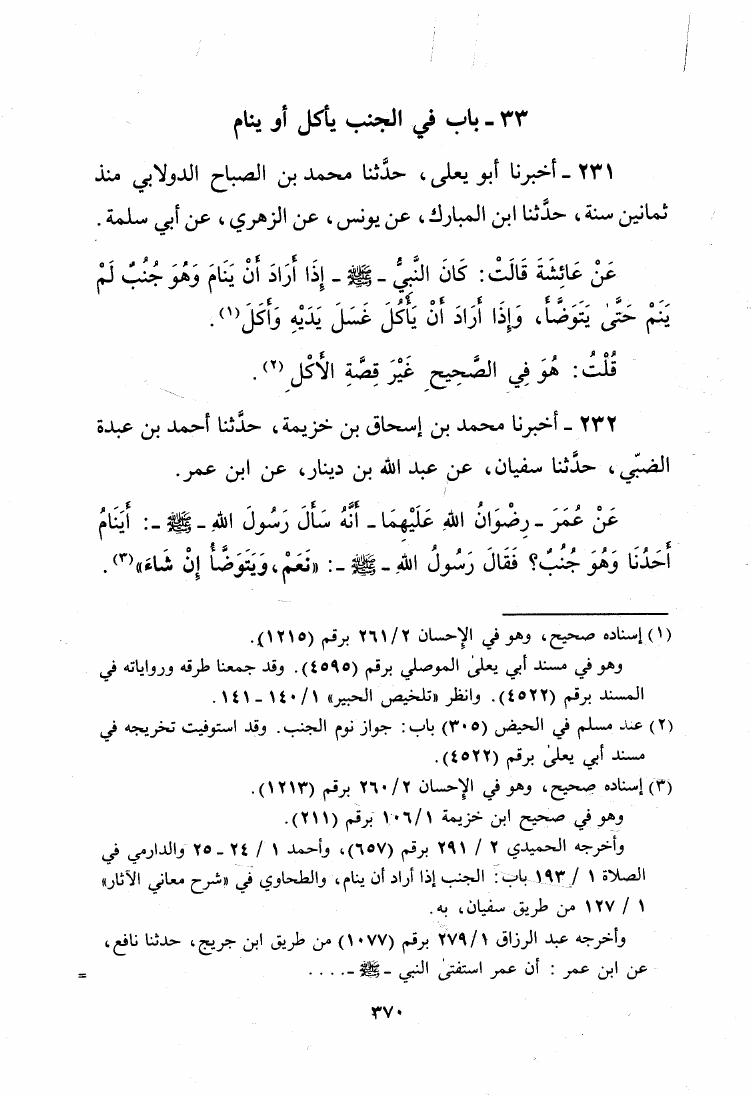 ٣٣ - باب في الجنب يأكل أو ينام
٢٣١ - أخبرنا أبو يعلى، حدَّثنا محمد بن الصباح الدولابي منذ
ثمانين سنة، حدَّثنا ابن المبارك، عن يونس، عن الزهري، عن أبي سلمة.
عَنْ عَائِشَةَ قَالَتْ: كَانَ النَّبِيُّ - ﷺ - إِذَا أَرَادَ أَنْ يَنَامَ وَهُوَ جُنُبٌ لَمْ
يَنَمْ حَتَّىٰ يَتَوَضَّأَ، وَإِذَا أَرَادَ أَنْ يَأْكُلَ غَسَلَ يَدَيْهِ وَأَكَلَ(١).
قُلْتُ: هُوَ فِي الصَّحِيحِ غَيْرَ قِصَّةِ الأَكْلِ(٢).
٢٣٢ - أخبرنا محمد بن إسحاق بن خزيمة، حدَّثنا أحمد بن عبدة
الضبّي، حدَّثنا سفيان، عن عبد الله بن دينار، عن ابن عمر.
عَنْ عُمَرَ - رِضْوَانُ اللهِ عَلَيْهِمَا - أَنَّهُ سَأَلَ رَسُولَ اللهِ - ﷺ -: أَيَنَامُ
أَحَدُنَا وَهُوَ جُنُبٌ؟ فَقَالَ رَسُولُ اللهِ - ﷺ -: «نَعَمْ، وَيَتَوَضَّأُ إِنْ شَاءَ»(٣).
(١) إسناده صحيح، وهو في الإحسان ٢/ ٢٦١ برقم (١٢١٥).
وهو في مسند أبي يعلىٰ الموصلي برقم (٤٥٩٥). وقد جمعنا طرقه ورواياته في
المسند برقم (٤٥٢٢). وانظر «تلخيص الحبير» ١/ ١٤٠ - ١٤١.
(٢) عند مسلم في الحيض (٣٠٥) باب: جواز نوم الجنب. وقد استوفيت تخريجه في
مسند أبي يعلىٰ برقم (٤٥٢٢).
(٣) إسناده صحيح، وهو في الإحسان ٢/ ٢٦٠ برقم (١٢١٣).
وهو في صحيح ابن خزيمة ١/ ١٠٦ برقم (٢١١).
وأخرجه الحميدي ٢ / ٢٩١ برقم (٦٥٧)، وأحمد ١ / ٢٤ - ٢٥ والدارمي في
الصلاة ١ / ١٩٣ باب: الجنب إذا أراد أن ينام، والطحاوي في «شرح معاني الآثار»
١ / ١٢٧ من طريق سفيان، به.
وأخرجه عبد الرزاق ١/ ٢٧٩ برقم (١٠٧٧) من طريق ابن جريج، حدثنا نافع،
عن ابن عمر : أن عمر استفتىٰ النبي - ﷺ - .... =
٣٧٠